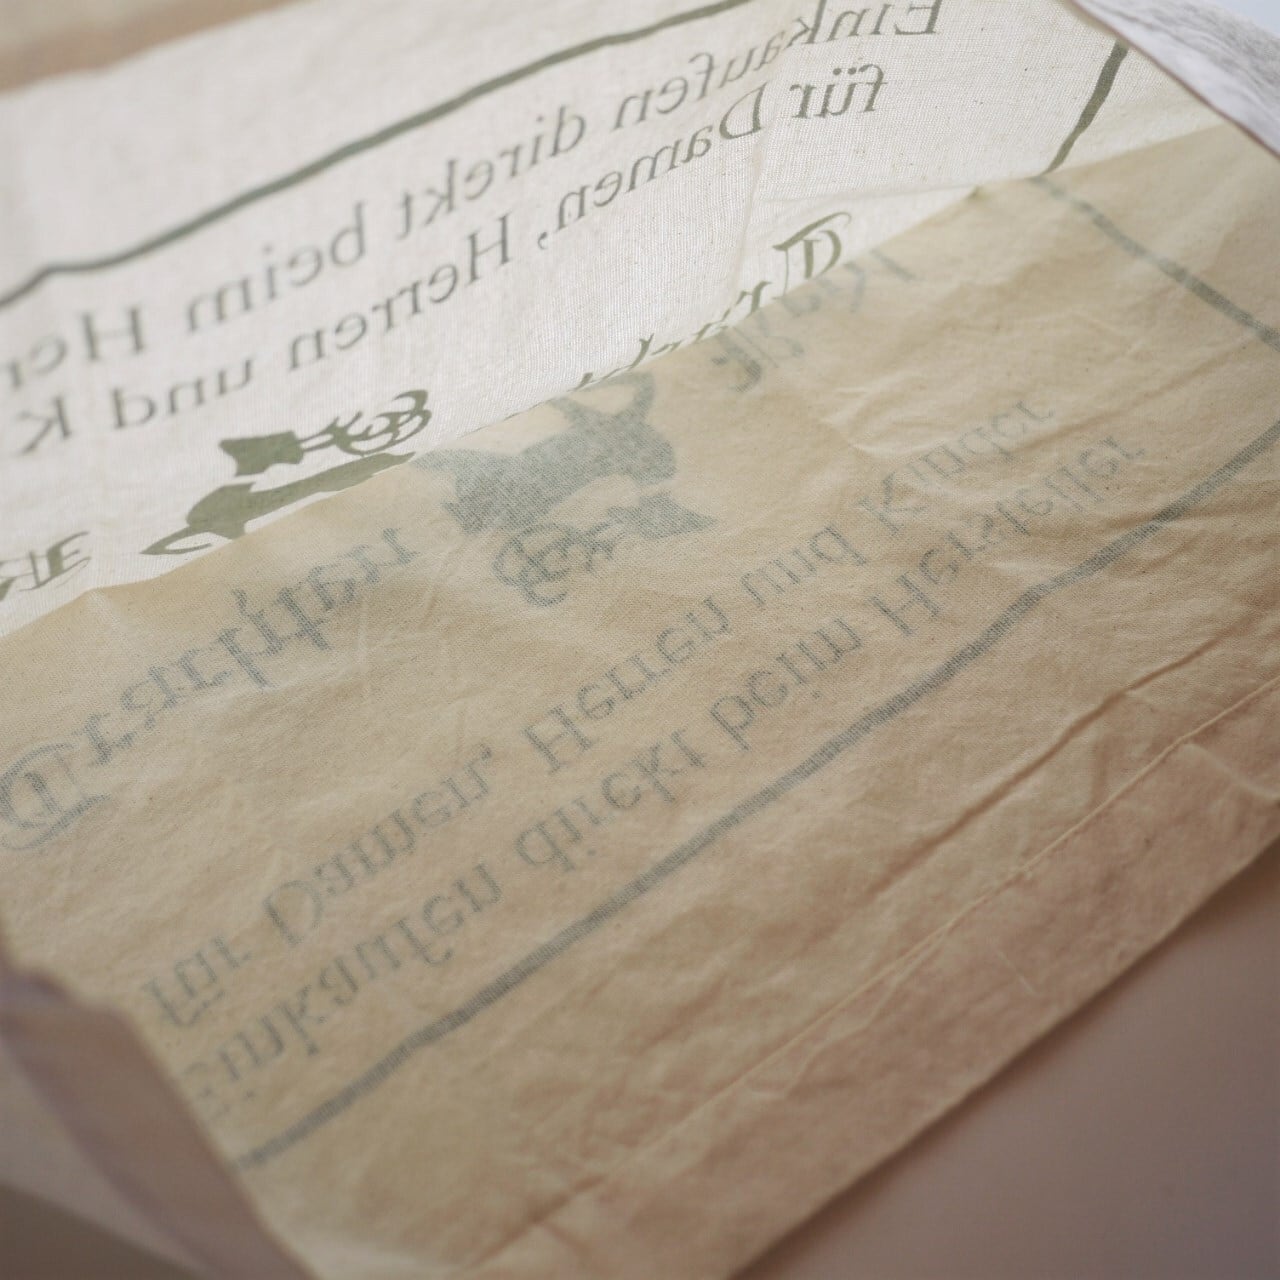 Einkaufen direkt beim Her
für Damen, Herren und K
Trachten
für Damen, Herren und Kinder
Einkaufen direkt beim Hersteller